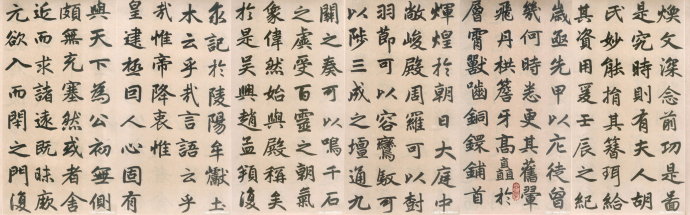 煥文深念前功是啚
是究時則有夫人胡
氏妙能捐其簪珥給
其資用爰壬辰之紀
歲亟先甲以庀徒曾
幾何時悉更其舊翬
飛丹栱簷牙高矗於
層霄獸嚙銅鐶鋪首
輝煌於朝日大庭中
敞峻殿周羅可以對
羽節可以容鸞馭可
以陟三成之壇通九
關之奏可以鳴千石
之虡受百靈之朝氣
象偉然始與殿稱矣
於是吳興趙孟頫復
求記於陵陽牟巘土
木云乎哉言語云乎
哉惟帝降衷惟
皇建極因人心固有
與天下為公初無側
頗無充塞然或者舍
近而求諸遠既昧厥
元欲入而閉之門復